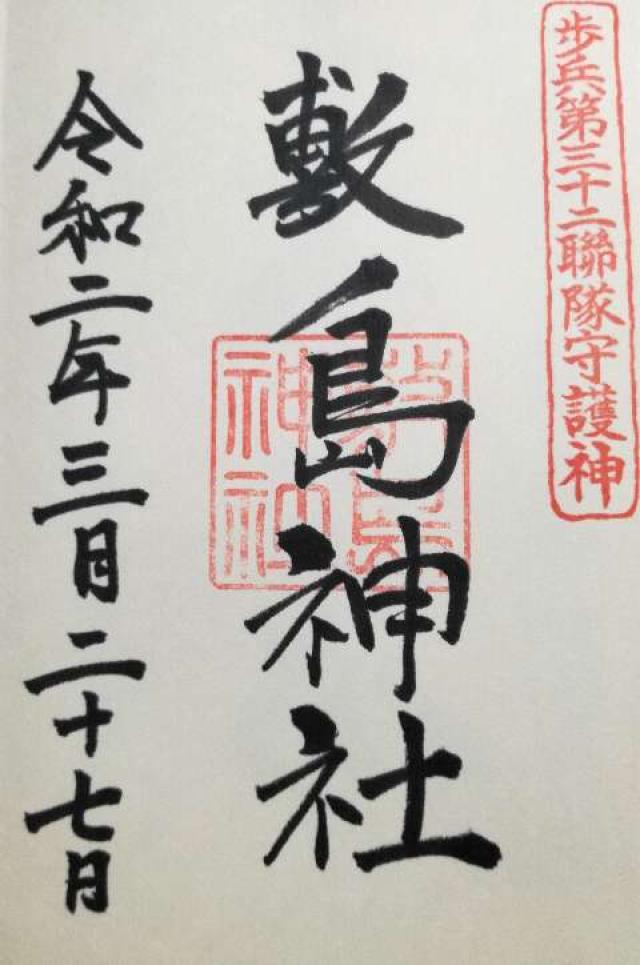 歩兵第三十二聯隊守護神
敷島神社
令和二年三月二十七日